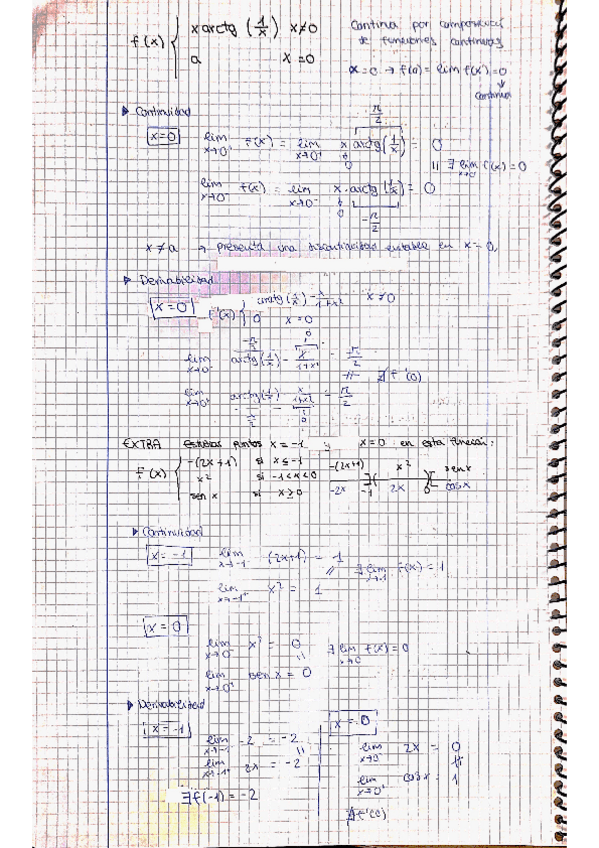 f(x) { x arctg (1/x) x≠0
a x=0
Continua por composición
de funciones continuas
x=0 → f(0) = lim f(x) = 0
↓
continua
▸ Continuidad
x=0 lim x→0⁺ f(x) = lim x→0⁺ x arctg(1/x) = 0
π/2
0
|| ∃ lim x→0 f(x) = 0
lim x→0⁻ f(x) = lim x→0⁻ x·arctg(1/x) = 0
0
-π/2
x≠a → presenta una discontinuidad evitable en x=0.
▸ Derivabilidad
x=0 f'(x) { arctg(1/x) - x/1+x² x≠0
0 x=0
lim x→0⁻ arctg(1/x) - x/1+x² = -π/2
-π/2 0
∦ ∄ f'(0)
lim x→0⁺ arctg(1/x) - x/1+x² = π/2
π/2 0
EXTRA Estudia puntos x=-1 y x=0 en esta función:
f(x) { -(2x+1) si x≤-1
x² si -1<x<0
sen x si x≥0
-(2x+1) x² sen x
-2x -1 2x 0 cos x
▸ Continuidad
x=-1 lim x→-1⁻ -(2x+1) = 1
|| ∃ lim x→-1 f(x) = 1
lim x→-1⁺ x² = 1
x=0
lim x→0⁻ x² = 0
|| ∃ lim x→0 f(x) = 0
lim x→0⁺ sen x = 0
▸ Derivabilidad
x=-1 lim x→-1⁻ -2 = -2
||
lim x→-1⁺ 2x = -2
∃ f'(-1) = -2
x=0
lim x→0⁻ 2x = 0
∦
lim x→0⁺ cos x = 1
∄ f'(0)